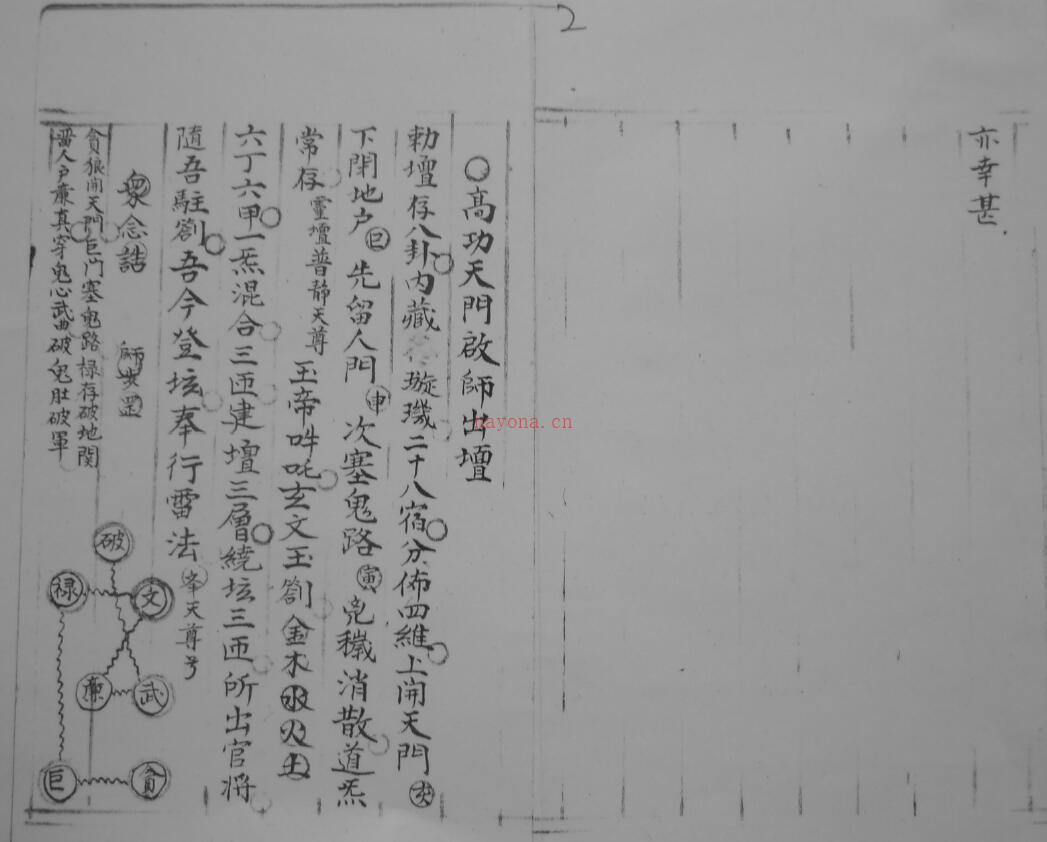 2
亦幸甚
高功天門啟師出壇
勅壇存八卦內藏璇璣二十八宿分佈四維上開天門亥
下閉地户巳先留人門申次塞鬼路寅兇穢消散道炁
常存靈壇普靜天尊玉帝吽吒玄文玉劄金木水火土
六丁六甲一炁混合三匝建壇三層繞坛三匝所出官將
隨吾駐劄吾今登坛奉行雷法举天尊号
衆念誥 師步罡
貪狼開天門巨门塞鬼路禄存破地関
畱人户廉真穿鬼心武曲破鬼肚破軍
破
禄 文
廉 武
巨 貪
nayona.cn